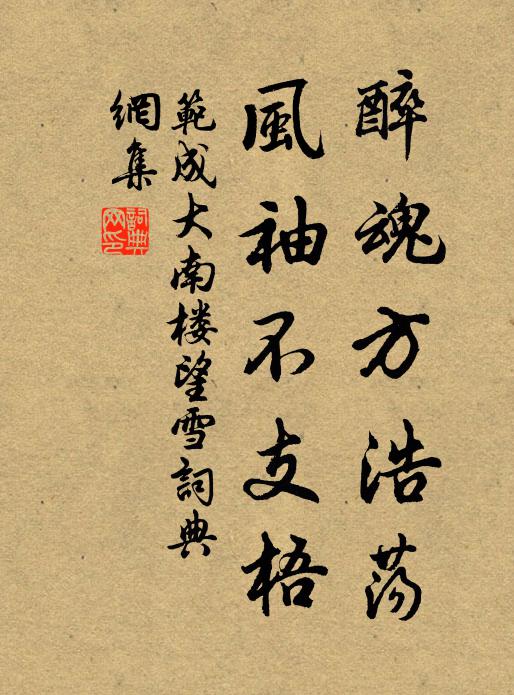 醉魂方浩蕩
風袖不支梧
範成大南楼望雪詞典
網集
詞典网印